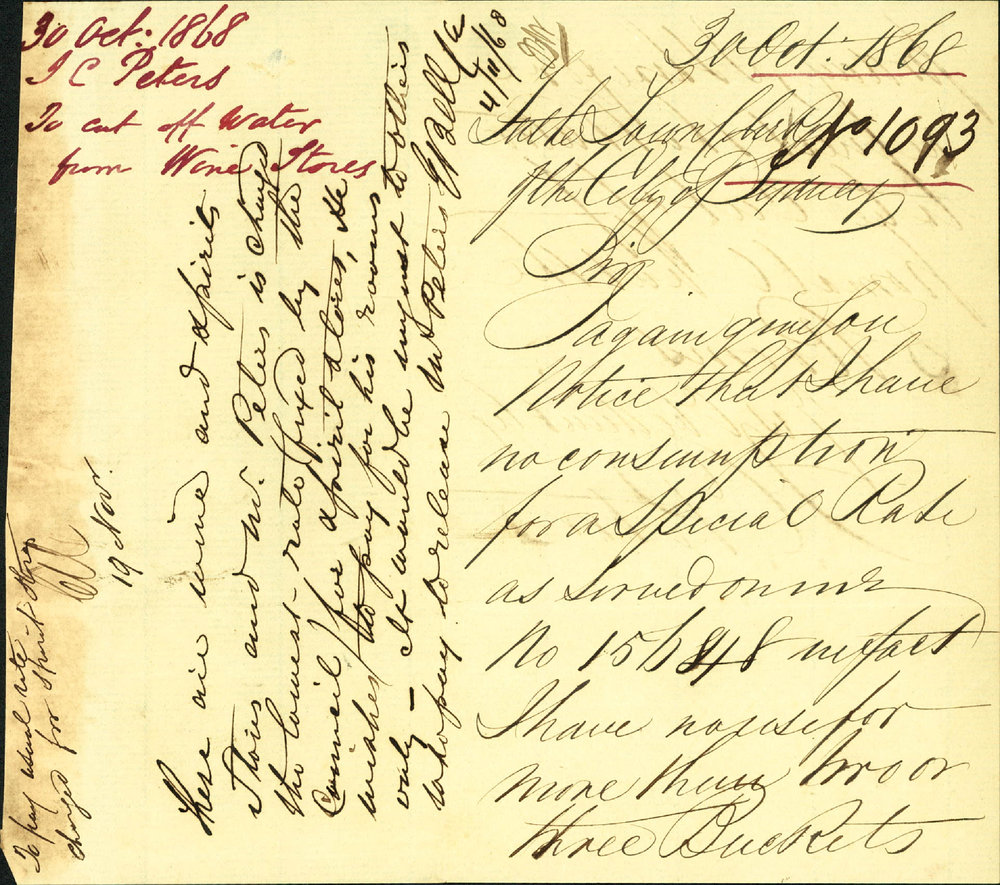 30 Oct: 1868
J C Peters
To cut off Water
from Wine Stores
These are wine and spirits
Stores and Mr. Peters is charged
the lowest rate fixed by the
Council for spirit stores, He
wishes to pay for his rooms
only — It would be unjust to others
who pay to release Mr Peters
W Bell
4/11/68
19 Nov.
To pay usual rate
charged for spirit stores
30 Oct: 1868
No 1093
To the Town Clerk
of the City of Sydney
Sir
I again give you
Notice that I have
no consumption
for a Special Rate
as served on me
No 15 848 in fact
I have no use for
more than two or
three Buckets